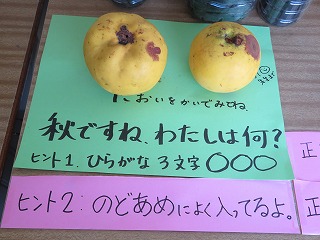 においをかいでみてね。
秋ですね、わたしは何?
ヒント1. ひらがな 3文字 ○○○
ヒント2:のどあめによく入ってるよ。
正
正